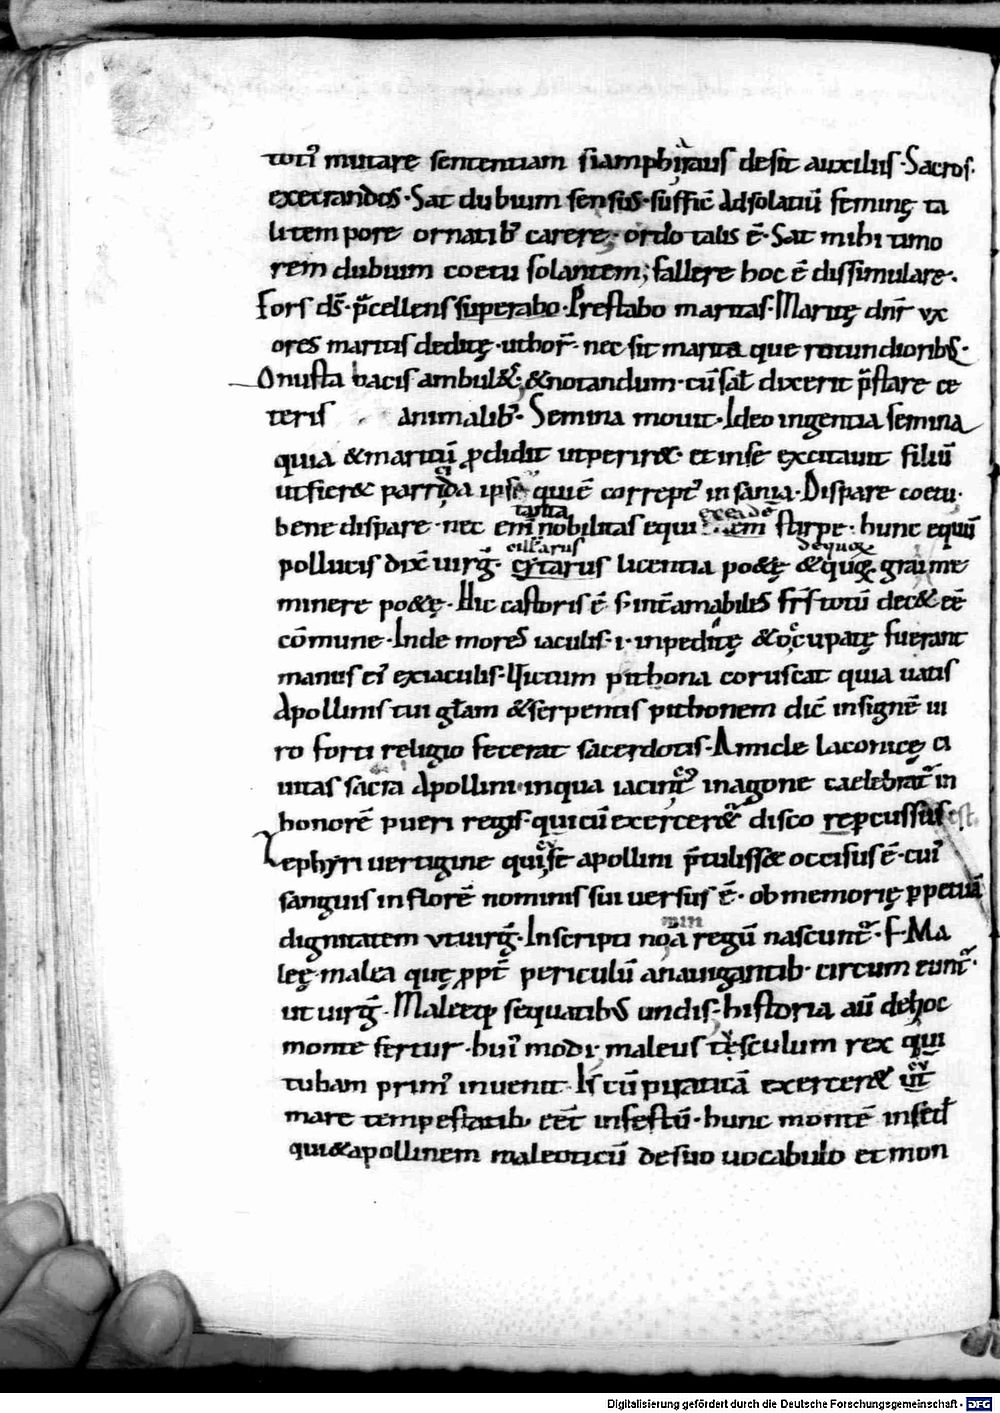 toti᷒ mutare sententiam siamphyraus desit auxiliis · Sacros ·
execrandos · Sat dubium sensus · suffic̄ Adsolatiū feminę ta
li tempore ornatib; carere · ordo talis ē · Sat mihi timo
rem dubium coetu solantem ; fallere hoc ē dissimulare ·
Fors ds̄ · p̄cellens superabo · Prestabo maritas · Maritę dn̄r vx
ores maritis deditę · ut hor̄ · nec sit marita que rotundioribus ·
Onusta bacis ambulet · & notandum · cū sal̄ dixerit p̄stare ce
teris animalib; · Semina mouit · Ideo ingentia semina
quia & maritū p̄didit ut periret · et inse excitauit filiū
ut fieret parricida ipse quiē corrept᷒ insania · Dispare coetu ·
bene dispare · nec eni᷒ tanta nobilitas equi stirpe · hunc equū
cillarus de quo
pollucis dix̄ uirḡ · cyrtarus licentia poetę & quoq; grai me
minere poetę · Hic castoris ē s· int̄ amabiles fr̄s totū decet eē
cōmune · Inde mores iaculis · i · inpeditę & occupatę fuerant
manus ei᷒ exiaculis · Ictum pithona coruscat quia uatis
Apollinis tui gl̄am & serpentis pithonem dic̄ insignē ui
ro forti religio fecerat sacerdotis · Amicle laconicę ci
uitas sacra Apollini · inqua iacinct᷒ inagone caelebrat̄ in
honorē pueri regis · qui cū exerceret᷒ disco repcussus est ·
Zephyri uertigine qui se apollini p̄tulisset occisus ē · cui᷒
sanguis in florē nominis sui uersus ē · ob memorię p̱petuā
dignitatem vt uirḡ · Inscripti noīa regū nascunt᷒ · F · Ma
min
leę · malea quę p̱pt̄ periculū anauigantib; circum eunt᷒ ·
ut uirḡ · Maleeq; sequatibus undis · historia aū de hoc
monte fertur · hui᷒ modi · maleus tusculum rex qui
tubam prim᷒ inuenit · Is cū piraticā exerceret ut
mare tempestatib; eēt infestū · hunc montē insed̄
qui & apollinem maleoticū de suo uocabulo et mon